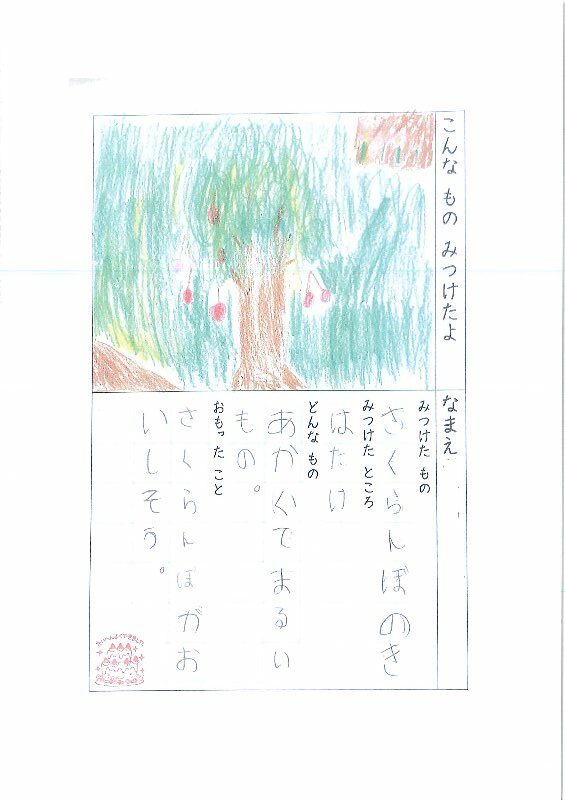 こんな もの みつけたよ
なまえ
みつけた もの
さくらんぼのき
みつけた ところ
はたけ
どんな もの
あかくてまるい
もの。
おもった こと
さくらんぼがお
いしそう。